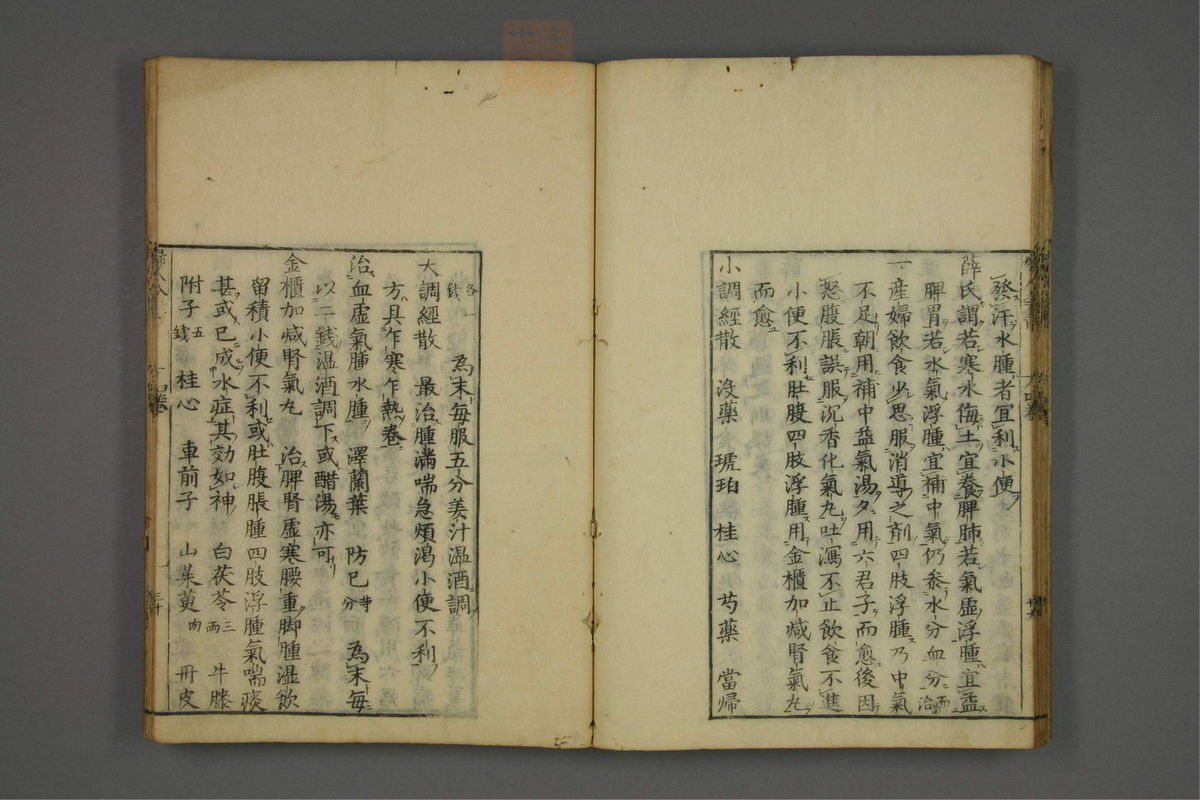 發汗水腫者宜利小便
薛氏謂若寒水侮土宜養脾肺若氣虛浮腫宜益
脾胃若水氣浮腫宜補中氣仍參水分血分而治
一產婦飲食少思服消導之剤四肢浮腫乃中氣
不足朝用補中益氣湯夕用六君子而愈後因
怒腹脹誤服沉香化氣丸吐瀉不止飲食不進
小便不利肚腹四肢浮腫用金櫃加减腎氣丸
而愈
小調經散 沒藥 琥珀 桂心 芍藥 當歸
各一錢 為末每服五分姜汁温酒調
大調經散 最治腫滿喘急煩渴小便不利
方具乍寒乍熱巻
治血虛氣腫水腫 澤蘭葉 防已等分 為末每
以二錢温酒調下或醋湯亦可
金櫃加减腎氣丸 治脾腎虛寒腰重脚腫湿飲
留積小便不利或肚腹脹腫四肢浮腫氣喘痰
甚或已成水症其効如神 白茯苓三兩 牛膝
附子五錢 桂心 車前子 山茱萸肉 冊皮